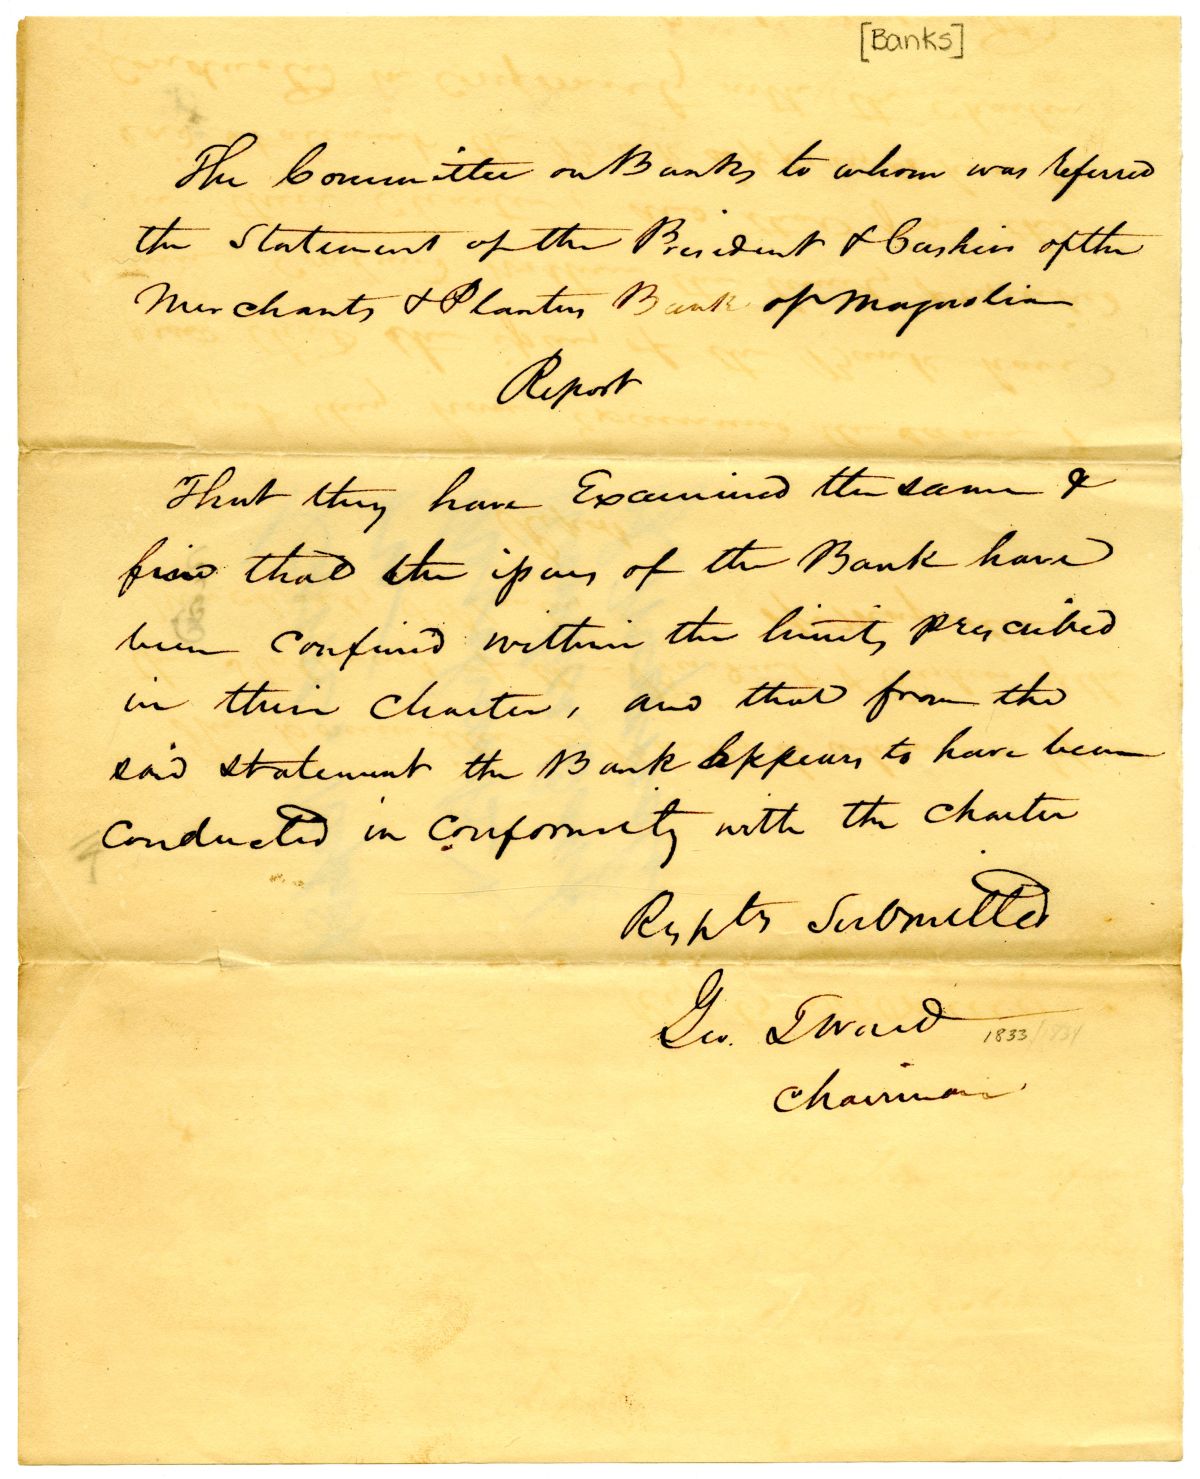 [Banks]
The Committee on Banks to whom was referred
the Statement of the President & Cashier of the
Merchants & Planters Bank of Magnolia
Report
That they have Examined the same &
find that the issues of the Bank have
been confined within the limits prescribed
in their charter, and that from the
said statement the Bank appears to have been
conducted in conformity with the charter
Respty Submitted
Geo. T Ward
1833/1834
Chairman